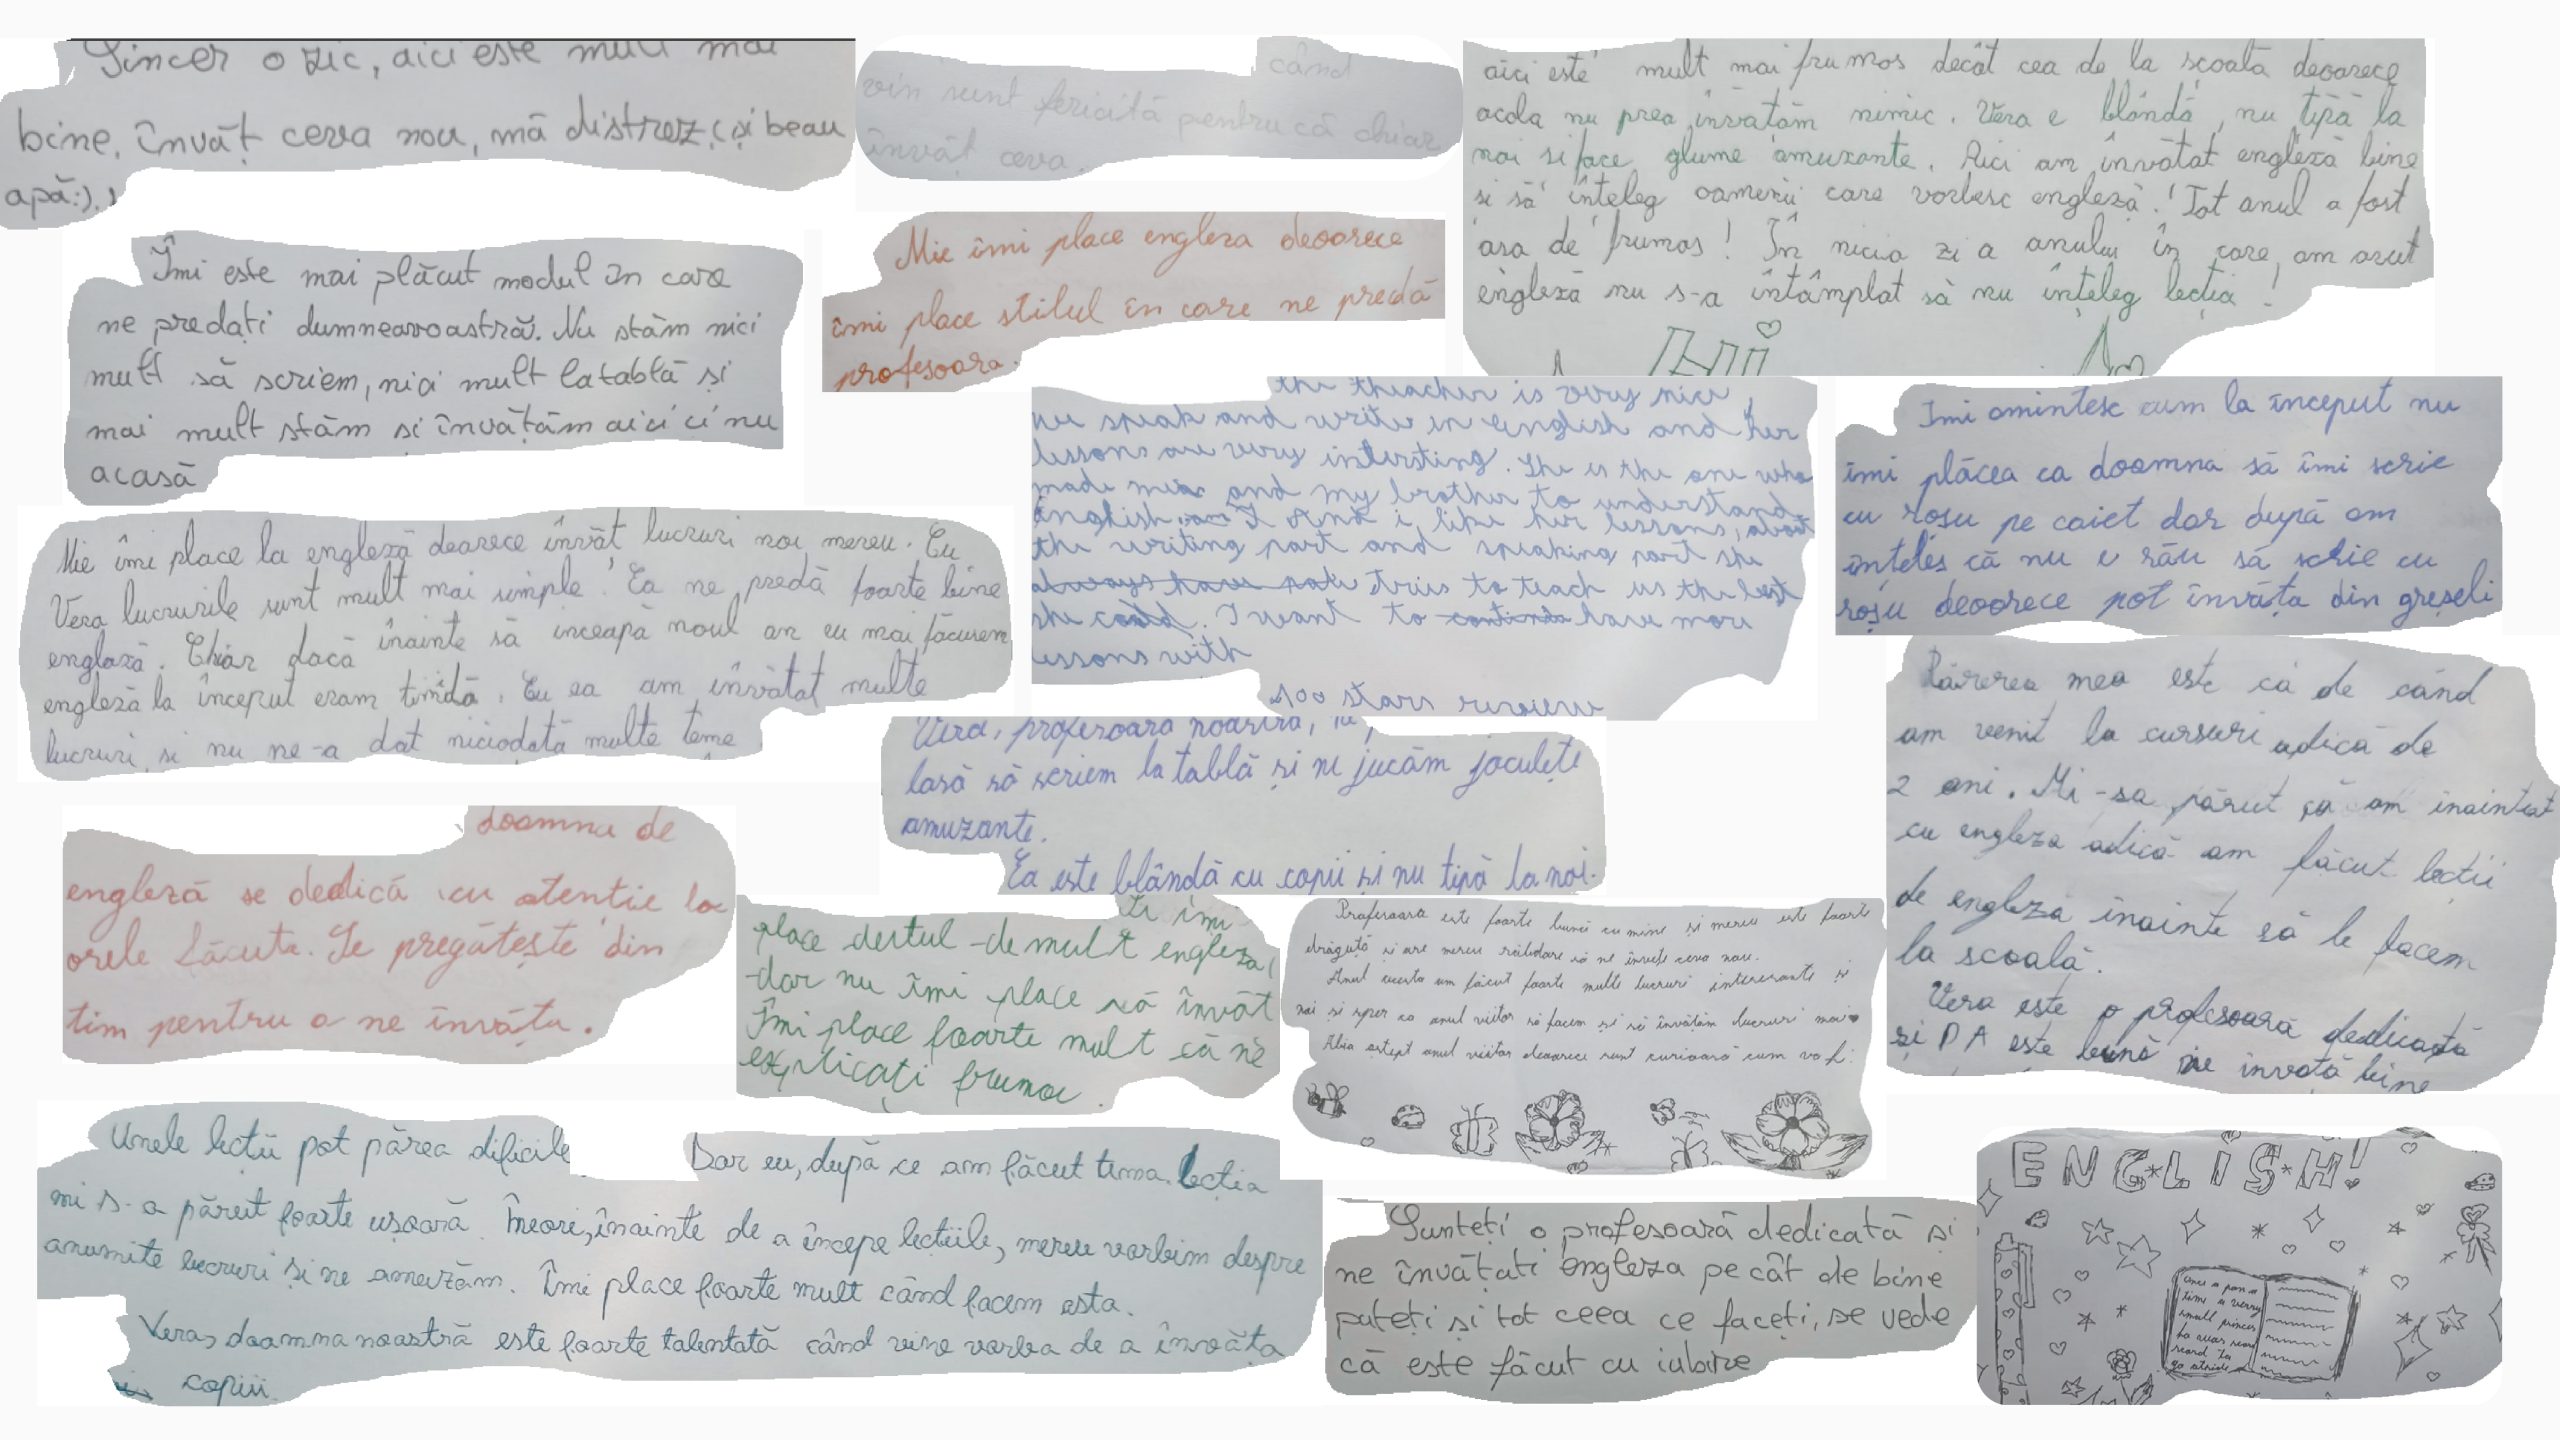 Sincer o zic, aici este mult mai
bine, învăț ceva nou, mă distrez, (și beau
apă:).)
când
vin sunt fericită pentru că chiar
învăț ceva.
aici este mult mai frumos decât cea de la școală deoarece
acolo nu prea învățăm nimic. Vera e blândă, nu țipă la
noi si face glume amuzante. Aici am învătat engleză bine
si să înteleg oamenii care vorbesc engleză! Tot anul a fost
asa de frumos! În nicio zi a anului în care am avut
engleză nu s-a întâmplat să nu înțeleg lecția!
Îmi este mai plăcut modul în care
ne predați dumneavoastră. Nu stăm nici
mult să scriem, nici mult la tablă și
mai mult stăm și învățăm aici ci nu
acasă
Mie îmi place engleza deoarece
îmi place stilul în care ne predă
profesoara.
the theacher is very nice,
we speak and write in english and her
lessons are very intersting. She is the one who
made me and my brother to understand
English. And i like her lessons, about
the writing part and speaking part she
always have tries to teach us the best
she could. I want to continda have more
lessons with
100 stars review
Imi amintesc cum la început nu
îmi plăcea ca doamna să îmi scrie
cu roșu pe caiet dar după am
înteles că nu e rău să scrie cu
roșu deoarece pot învăța din greșeli
Mie îmi place la engleză deoarece învăt lucruri noi mereu. Cu
Vera lucrurile sunt mult mai simple! Ea ne predă foarte bine
engleză. Chiar dacă înainte să inceapă noul an eu mai făcusem
engleză la început eram timidă. Cu ea am învătat multe
lucruri si nu ne-a dat niciodată multe teme
Vera, profesoara noastră, ne
lasă să scriem la tablă și ne jucăm joculețe
amuzante.
Ea este blândă cu copii și nu țipă la noi.
Părerea mea este că de când
am venit la cursuri adică de
2 ani. Mi-sa părut că am înaintat
cu engleza adică am făcut lectii
de engleză înainte să le facem
la scoală.
Vera este o profesoară dedicată
și DA este bună ne învată bine
doamna de
engleză se dedică cu atentie la
orele făcute. Se pregătește din
timp pentru a ne învăța.
îmi
place destul de mult engleza
dar nu îmi place să învăt
Îmi place foarte mult că ne
explicați frumos.
Profesoara este foarte bună cu mine și mereu este foarte
drăguță și are mereu răbdare să ne învețe ceva nou.
Anul acesta am făcut foarte multe lucruri interesante și
noi și sper ca anul viitor să facem și să învățăm lucruri noi
Abia astept anul viitor deoarece sunt curioasă cum va fi.
Unele lecții pot părea dificile
Dar eu, după ce am făcut tema. Lecția
mi s-a părut foarte ușoară. Uneori, înainte de a începe lecțiile, mereu vorbim despre
anumite lucruri și ne amuzăm. Îmi place foarte mult când facem asta.
Vera, doamna noastră este foarte talentată când vine vorba de a învăța
copiii.
Sunteți o profesoară dedicată și
ne învățati engleza pe cât de bine
puteți și tot ceea ce faceți, se vede
că este făcut cu iubire
ENGLISH!